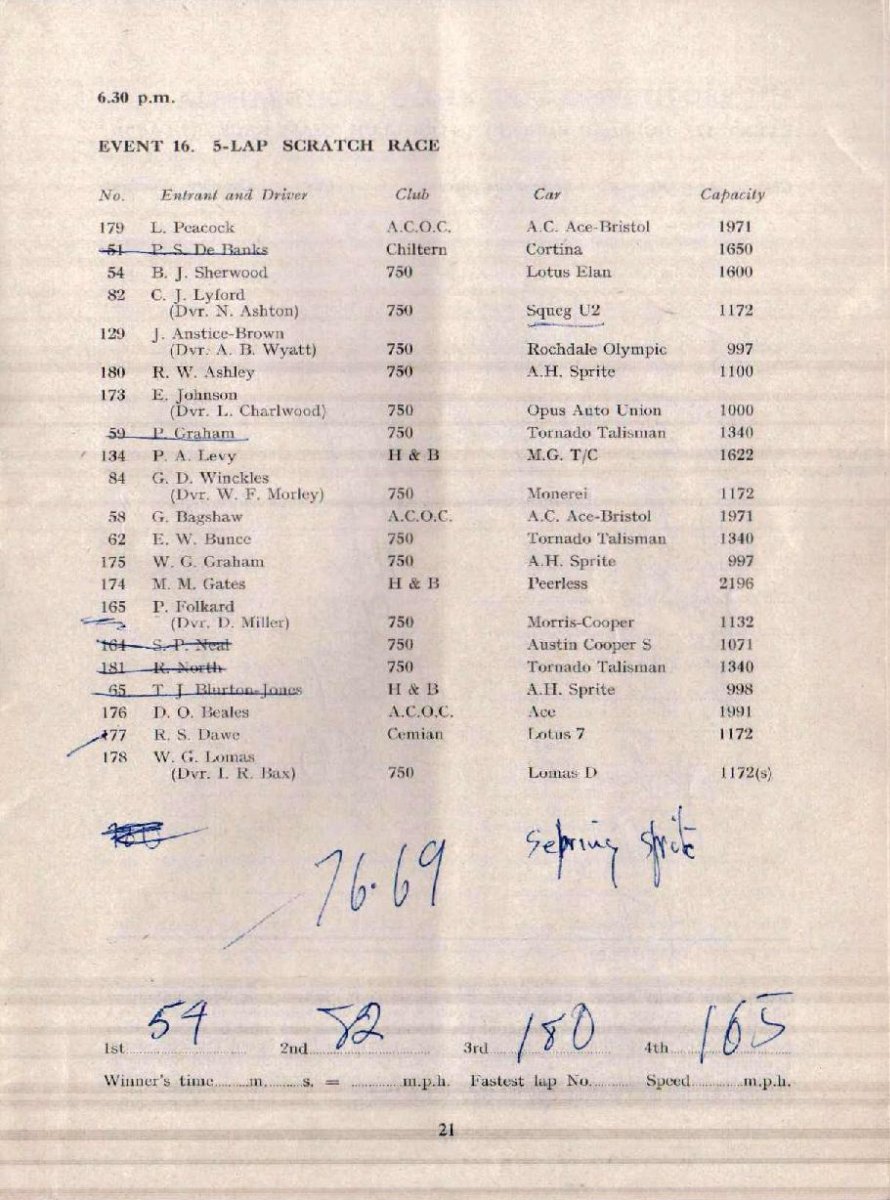 6.30 p.m.
EVENT 16. 5-LAP SCRATCH RACE
No. Entrant and Driver Club Car Capacity
179 L. Peacock A.C.O.C. A.C. Ace-Bristol 1971
51 P. S. De Banks Chiltern Cortina 1650
54 B. J. Sherwood 750 Lotus Elan 1600
82 C. J. Lyford
(Dvr. N. Ashton) 750 Squeg U2 1172
129 J. Anstice-Brown
(Dvr. A. B. Wyatt) 750 Rochdale Olympic 997
180 R. W. Ashley 750 A.H. Sprite 1100
173 E. Johnson
(Dvr. L. Charlwood) 750 Opus Auto Union 1000
59 P. Graham 750 Tornado Talisman 1340
134 P. A. Levy H & B M.G. T/C 1622
84 G. D. Winckles
(Dvr. W. F. Morley) 750 Monerei 1172
58 G. Bagshaw A.C.O.C. A.C. Ace-Bristol 1971
62 E. W. Bunce 750 Tornado Talisman 1340
175 W. G. Graham 750 A.H. Sprite 997
174 M. M. Gates H & B Peerless 2196
165 P. Folkard
(Dvr. D. Miller) 750 Morris-Cooper 1132
164 S. P. Neal 750 Austin Cooper S 1071
181 R. North 750 Tornado Talisman 1340
65 T. J. Blurton-Jones H & B A.H. Sprite 998
176 D. O. Beales A.C.O.C. Ace 1991
177 R. S. Dawe Cemian Lotus 7 1172
178 W. G. Lomas
(Dvr. I. R. Bax) 750 Lomas D 1172(s)
Sebring Sprite
76.69
1st 54 2nd 82 3rd 180 4th 165
Winner's time m. s. = m.p.h. Fastest lap No. Speed m.p.h.
21